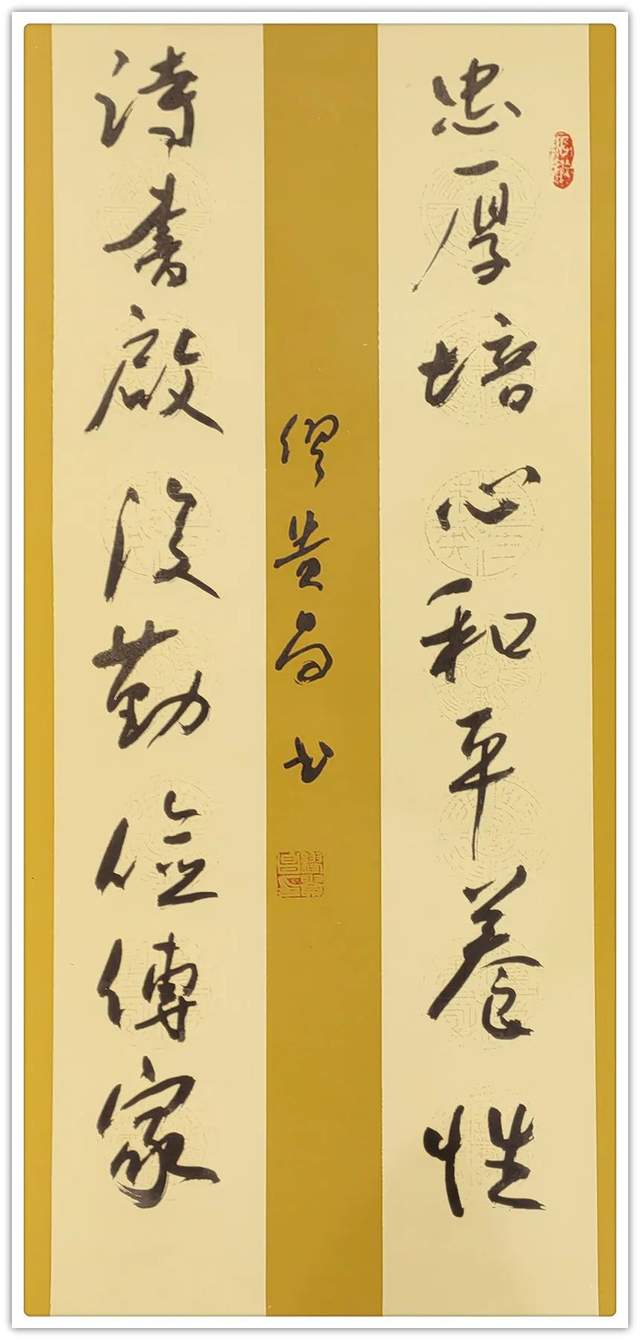 忠厚培心和平養性
詩書啟後勤儉傳家
缪贵尚书